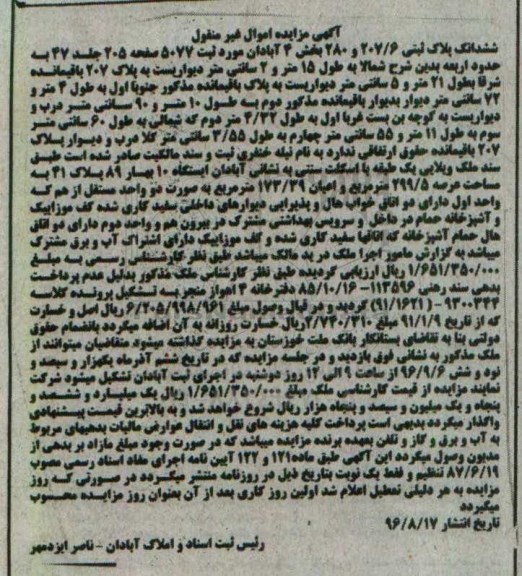 آگهی مزایده اموال غیر منقول
ششدانگ پلاک ثبتی ۲۰۷/۶ و ۲۸۰ بخش ۴ آبادان مورد ثبت ۵۰۷۷ صفحه ۲۰۵ جلد ۴۷ به
حدود اربعه بدین شرح شمالا به طول ۱۵ متر و ۲ سانتی متر دیواریست به پلاک ۲۰۷ باقیمانده
شرقا بطول ۲۱ متر و ۵ سانتی متر دیواریست به پلاک باقیمانده مذکور جنوبا اول به طول ۴ متر و
۷۲ سانتی متر دیوار بدیوار باقیمانده مذکور دوم به طول ۱۰ متر و ۹۰ سانتی متر درب و
دیواریست به کوچه بن بست غربا اول به طول ۴/۳۲ متر دوم که شمالی به طول ۶۰ سانتی متر
سوم به طول ۱۱ متر و ۵۵ سانتی متر چهارم به طول ۳/۵۵ سانتی متر کلا درب و دیوار پلاک
۲۰۷ باقیمانده حقوق ارتفاقی ندارد به نام نبله غنفری ثبت و سند مالکیت صادر شده است طبق
سند ملک ویلایی یک طبقه با اسکلت سنتی به نشانی آبادان ایستگاه ۱۰ بهار ۸۹ پلاک ۴۱ به
مساحت عرصه ۲۹۹/۵ مترمربع و اعیان ۱۷۳/۳۹ مترمربع به صورت دو واحد مستقل از هم که
واحد اول دارای دو اتاق خواب هال و پذیرایی دیوارهای داخلی سفید کاری شده کف موزاییک
و آشپزخانه حمام در داخل و سرویس بهداشتی مشترک در بیرون هم و واحد دوم دارای دو اتاق
هال حمام آشپزخانه که اتاقها سفید کاری شده و کف موزاییک دارای اشتراک آب و برق مشترک
میباشد به گزارش مامور اجرا ملک در ید مالک میباشد طبق نظر کارشناس رسمی به مبلغ
۱/۶۵۱/۳۵۰/۰۰۰ ریال ارزیابی گردیده طبق نظر کارشناس ملک مذکور بدلیل عدم پرداخت
بدهی سند رهنی ۱۱۳۵۹۶- ۸۵/۱۰/۱۶ دفترخانه ۴ اهواز منجر به تشکیل پرونده کلاسه
۹۳۰۰۳۴۴ - (۹۱/۱۶۲۱) گردید و در قبال وصول مبلغ ۶/۲۰۵/۹۹۸/۹۶۱ ریال اصل و خسارت
که از تاریخ ۹۱/۱/۹ مبلغ ۲/۷۴۰/۳۱۰ ریال خسارت روزانه به آن اضافه میگردد بانضمام حقوق
دولتی بنا به تقاضای بستانکار بانک ملت خوزستان به مزایده گذاشته میشود متقاضیان میتوانند از
ملک مذکور به نشانی فوق بازدید و در جلسه مزایده که در تاریخ ششم آذرماه یکهزار و سیصد و
نود و شش ۹۶/۹/۶ از ساعت ۹ الی ۱۲ روز دوشنبه در اجرای ثبت آبادان تشکیل میشود شرکت
نمایند مزایده از قیمت کارشناسی ملک مبلغ ۱/۶۵۱/۳۵۰/۰۰۰ ریال یک میلیارد و ششصد و
پنجاه و یک میلیون و سیصد و پنجاه هزار ریال شروع خواهد شد و به بالاترین قیمت پیشنهادی
واگذار میگردد بدیهی است پرداخت کلیه هزینه های نقل و انتقال عوارض مالیات بدهیهای مربوط
به آب و برق و گاز و تلفن بعهده برنده مزایده میباشد که در صورت وجود مبلغ مازاد بر بدهی از
مدیون وصول میگردد این آگهی طبق ماده ۱۲۱ و ۱۲۲ آیین نامه اجرای مفاد اسناد رسمی مصوب
۸۷/۶/۱۹ تنظیم و فقط یک نوبت بتاریخ ذیل در روزنامه منتشر میگردد در صورتی که روز
مزایده به هر دلیلی تعطیل اعلام شد اولین روز کاری بعد از آن بعنوان روز مزایده محسوب
میگردد
تاریخ انتشار ۹۶/۸/۱۷
رئیس ثبت اسناد و املاک آبادان - ناصر ایزدمهر